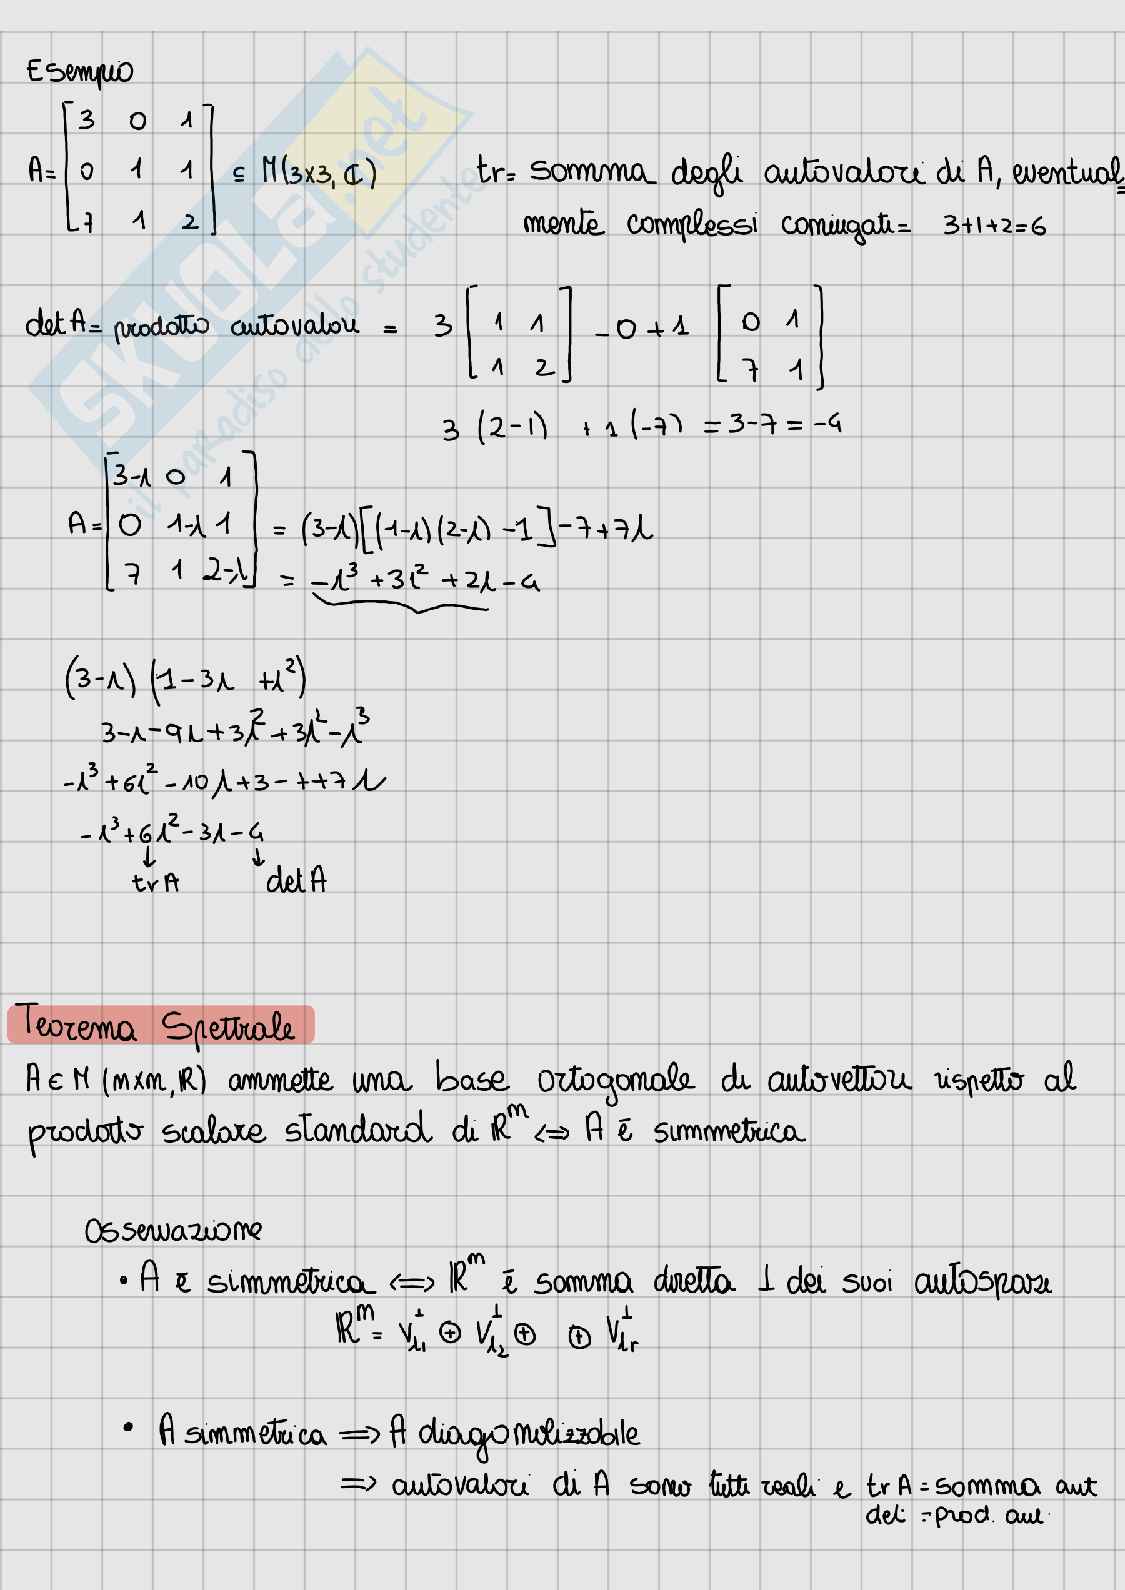 Esempio
A= [3 0 1
0 1 1
7 1 2] ⊆ M(3x3, ℂ)
tr= somma degli autovalori di A, eventual=
mente complessi coniugati= 3+1+2=6
det A= prodotto autovalori = 3 [1 1
1 2] -0+1 [0 1
7 1]
3 (2-1) +1 (-7) = 3-7 = -4
A= [3-λ 0 1
0 1-λ 1
7 1 2-λ] = (3-λ)[(1-λ)(2-λ) -1] -7+7λ
= -λ³ +3λ² +2λ -4
(3-λ) (1-3λ +λ²)
3-λ-9λ+3λ²+3λ²-λ³
-λ³+6λ²-10λ+3-7+7λ
-λ³+6λ²-3λ-4
↓ ↓
trA detA
Teorema Spettrale
A∈M (nxn, ℝ) ammette una base ortogonale di autovettori rispetto al
prodotto scalare standard di ℝⁿ ⇔ A è simmetrica
Osservazione
• A è simmetrica ⇔ ℝⁿ è somma diretta ⊥ dei suoi autospazi
ℝⁿ= V⊥λ₁ ⊕ V⊥λ₂ ⊕ ⊕ V⊥λr
• A simmetrica ⇒ A diagonalizzabile
⇒ autovalori di A sono tutti reali e trA = somma aut
det = prod. aut
SKUOLA.net
il paradiso dello studente